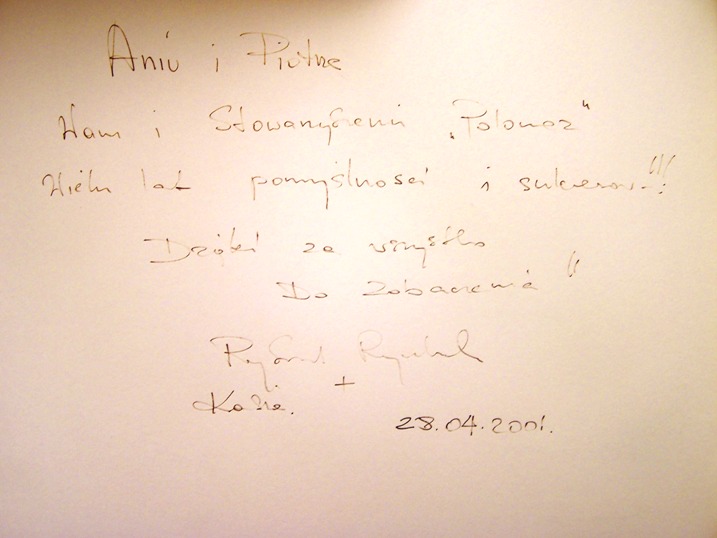 Aniu i Piotrze
Wam i Stowarzyszeniu „Polonez"
Wielu lat pomyślności i sukcesów!!!
Dzięki za wszystko
Do zobaczenia !!
Ryszard
+
Kasia.
28.04.2001.